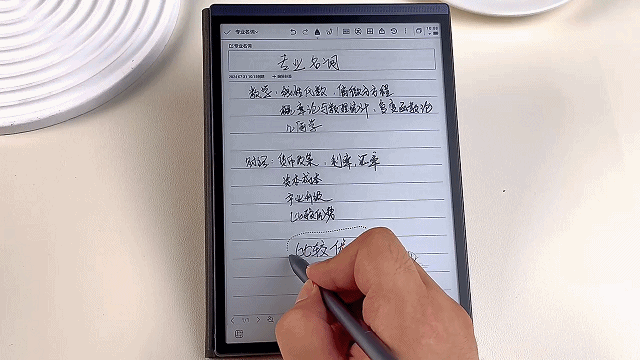 专业名词
专业名词
专业名词
数学：线性代数，偏微分方程
概率论与数理统计，复变函数论
几何学
财经：货币政策，利率，汇率
资本成本
产业升级
比较优势
比较